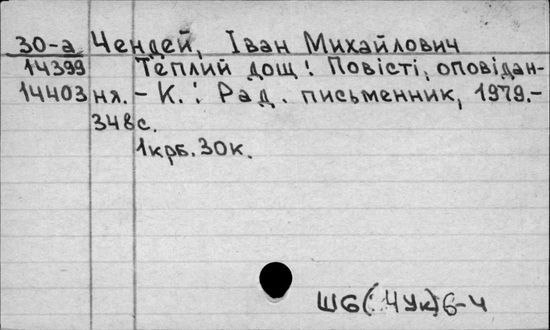 30-а Чендей, Іван Михайлович
14399 Теплий дощ: Повісті, оповідан-
14403 ня. - К.: Рад. письменник, 1979.-
348с.
1крб. 30к.
Ш6(4Ук)6-4